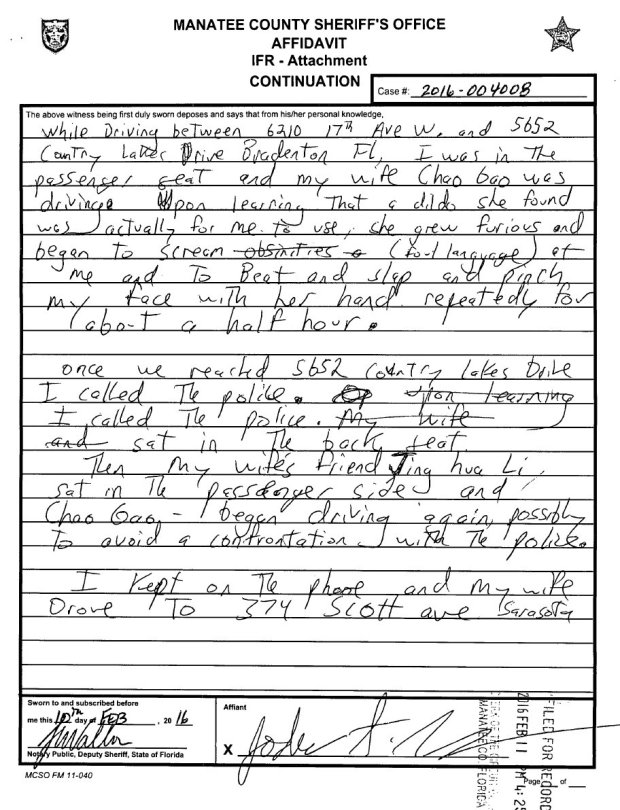 MANATEE COUNTY SHERIFF'S OFFICE
AFFIDAVIT
IFR - Attachment
CONTINUATION
Case #: 2016-004008
The above witness being first duly sworn deposes and says that from his/her personal knowledge,
While Driving between 6210 17th Ave W. and 5652
Country Lakes Drive Bradenton Fl, I was in The
passenger seat and my wife Chao Gao was
driving. Upon learning That a dildo she found
was actually for me to use, she grew furious and
began To scream obsinities (foul language) at
me and To Beat and slap and pinch
my face with her hand repeatedly for
about a half hour.
once we reached 5652 Country Lakes Drive
I called The police. upon learning
I called The police. My wife
and sat in The back seat.
Then my wife's friend Ying hua Li,
sat in The passdenger side and
Chao Gao, - began driving again, possibly
To avoid a confrontation with The police.
I kept on The phone and my wife
Drove To 374 Scott ave Sarasota
Sworn to and subscribed before
me this 10th day of FEB, 2016
Notary Public, Deputy Sheriff, State of Florida
Affiant
X
MCSO FM 11-040
Page of
FILED FOR RECORD
2016 FEB 11 PM 4:25
MANATEE CO. FLORIDA